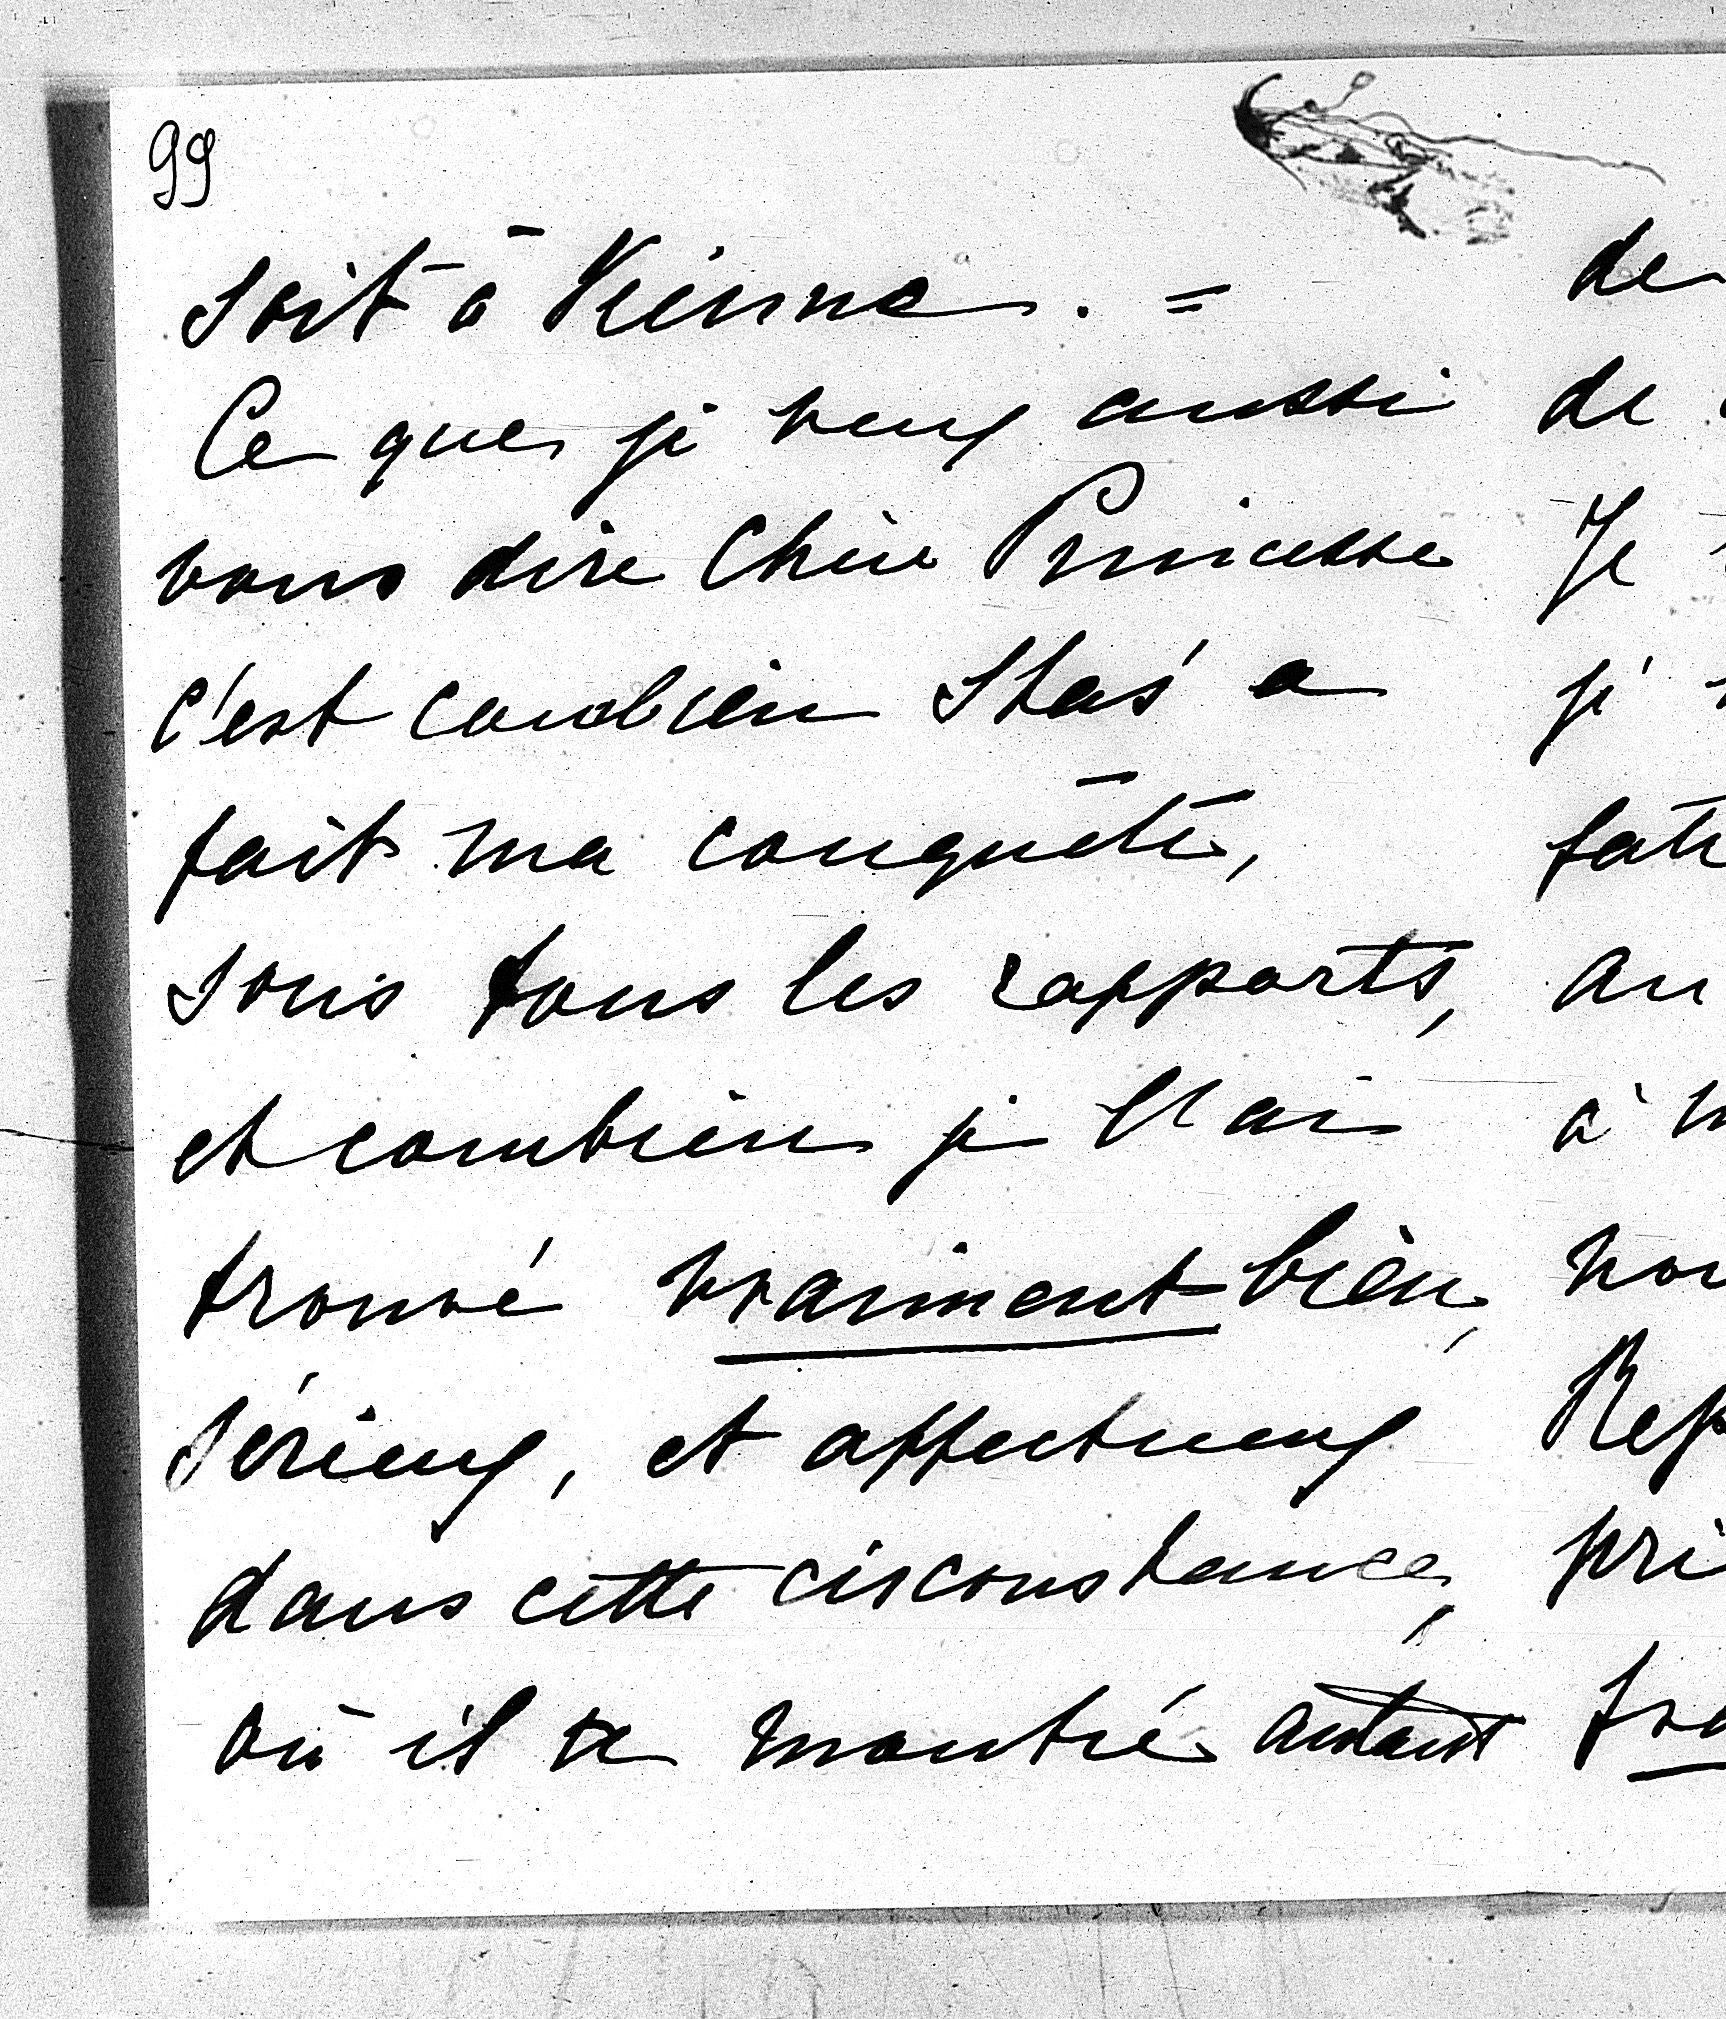 99
soit à Vienne. =
Ce que je veux aussi
vous dire Chère Princesse
c'est combien Staś a
fait ma conquête,
sous tous les rapports,
et combien je l'ai
trouvé vraiment bien,
sérieux, et affectueux
dans cette circonstance,
où il a montré autant
de
de
Je
j'
fati
au
à
Rep
pri